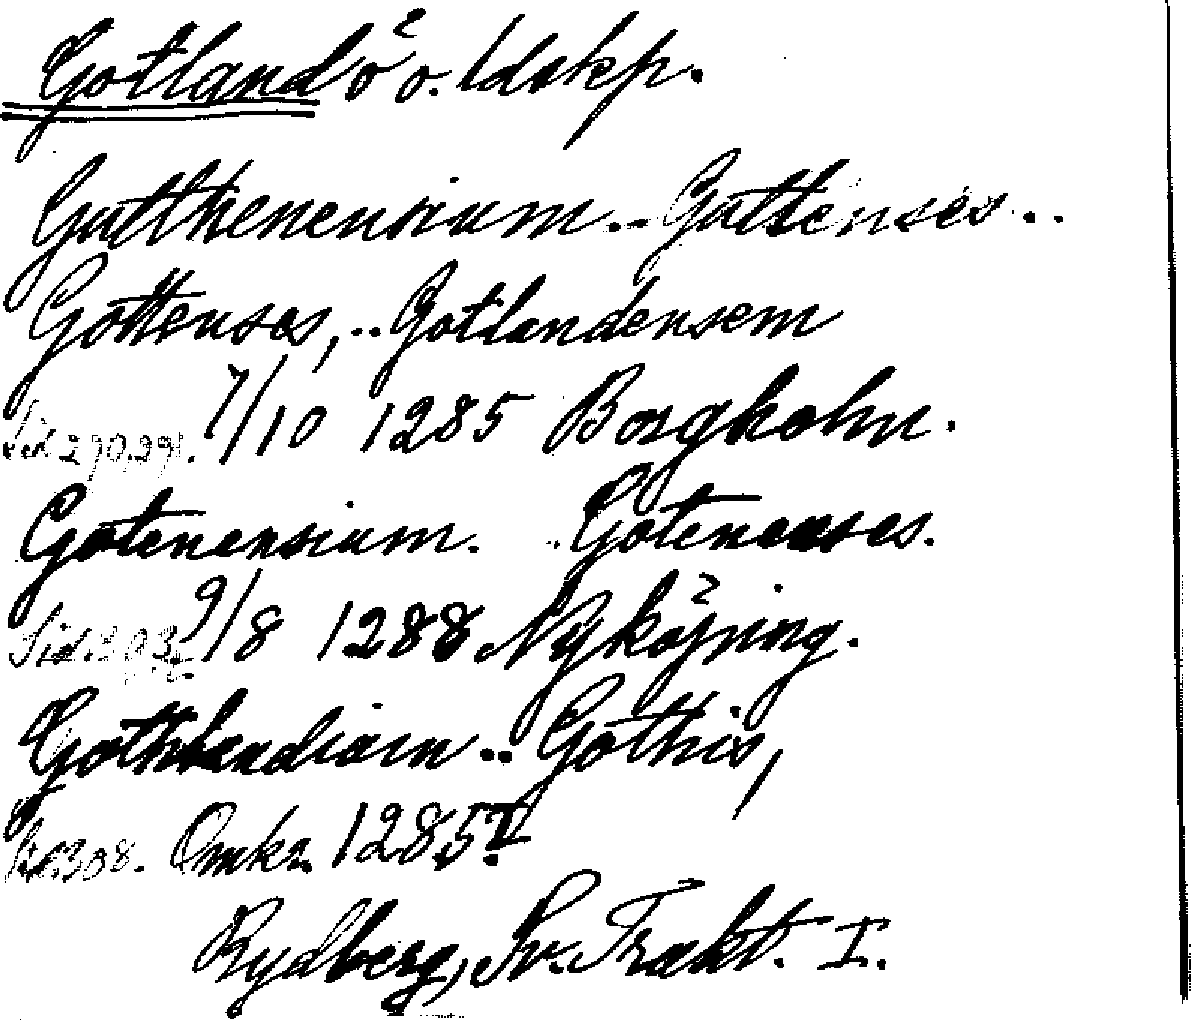 Gotland ö o. ldskp.
Gutthenensium .. Guttenses ..
Gottenses, .. Gotlandensem
Sid. 290, 291. 7/10 1285 Borgholm.
Gotenensium. .. Gotenenses.
Sid. 303. 9/8 1288 Nyköping.
Gothlandiam .. Gothis,
Sid. 308. Omkr. 1285?
Rydberg, Sv. Trakt. I.